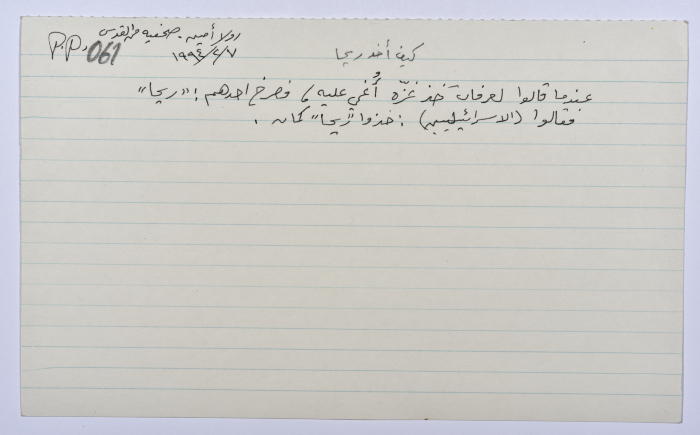 رولا أمين. صحفية من القدس
١٩٩٤/٤/٧
P.P. 061
كيف أخذ ريحا
عندما قالوا لعرفات خذ غزّه أُغمي عليه، فصرخ احدهم: "ريحا"
فقالوا (الاسرائيليين): خذوا "ريحا" كمان.